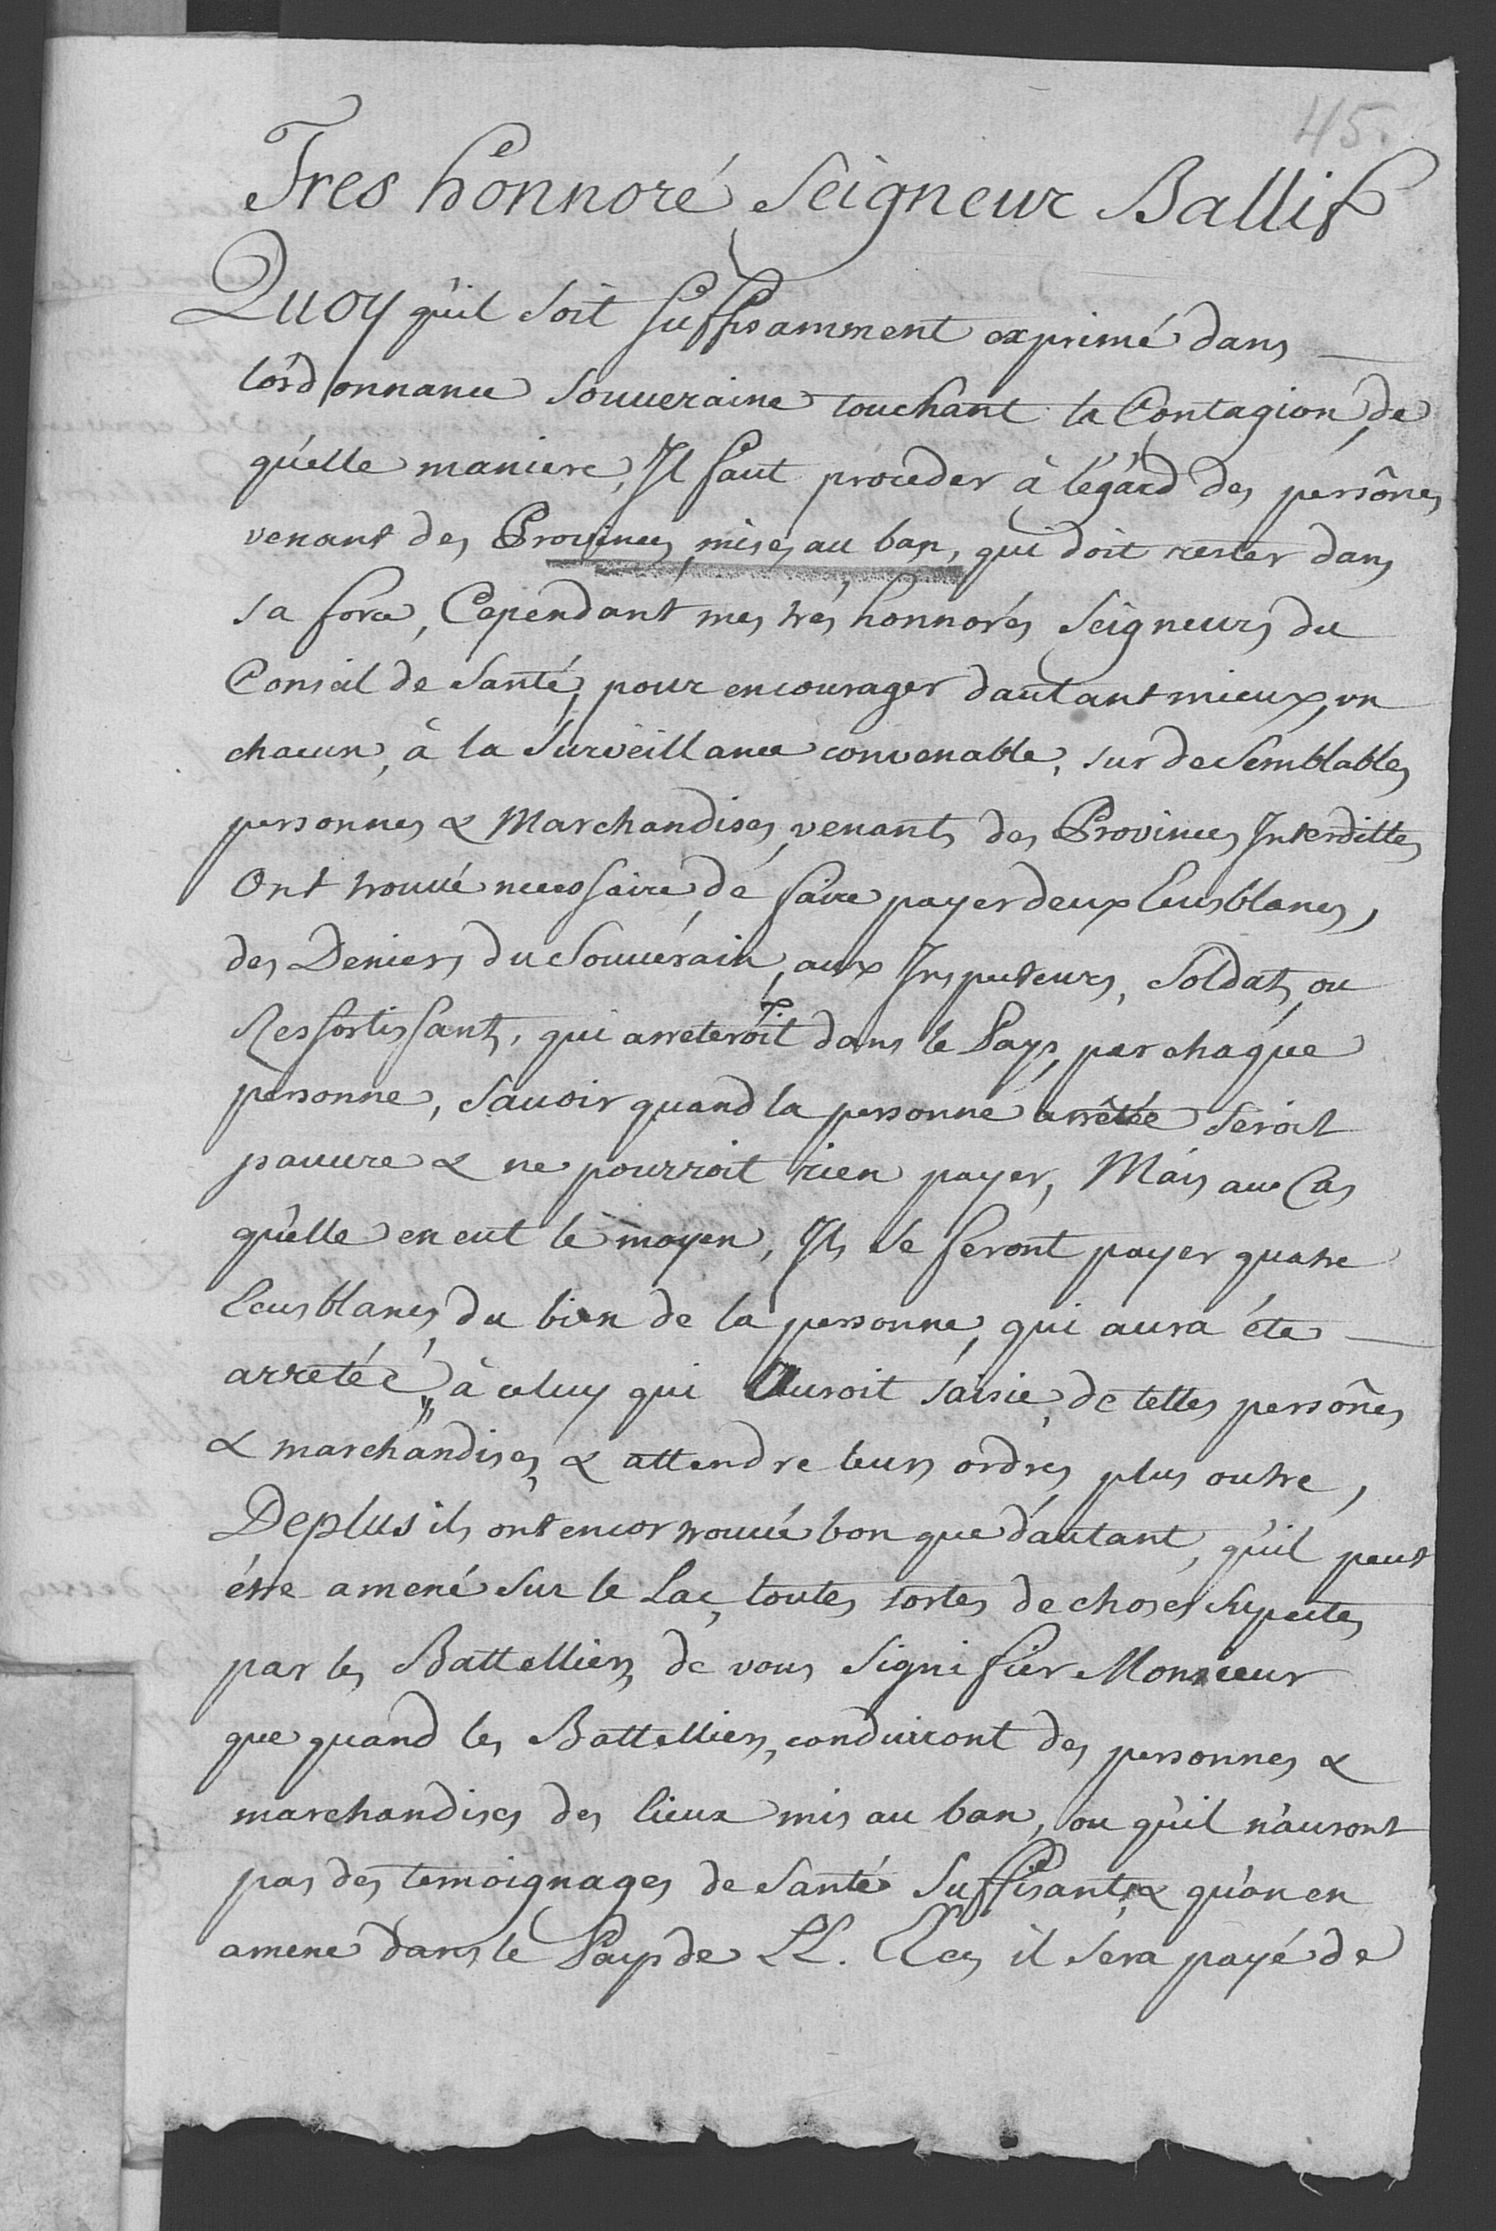 45.
Tres honnoré Seigneur Ballif
Quoy quil soit suffisamment exprimé dans
lordonnance souueraine touchant la Contagion, de
quelle maniere, Il faut proceder à légard des persones
venant des Provinces mises au ban, qui doit rester dans
sa force, Cependant mes tres honnorés Seigneurs du
Conseil de Santé, pour encourager dautant mieux, un
chacun, à la surveillance convenable, sur de semblables
personnes & Marchandises, venants des Provinces Interdittes
Ont trouué necessaire de faire payer deux Ecus blancs,
des Deniers du Souuérain, aux Inspecteurs, Soldats, ou
Ressortissants, qui arreteroit dans le Pays, par chaque
personne, savoir quand la personne arrêtée seroit
pauure & ne pourroit rien payer, Mais au Cas
quelle en eut le moyen, Ils se feront payer quatre
Ecus blancs, du bien de la personne, qui aura éte
arretéé, à celuy qui Auroit saisie, de telles persones
& marchandises, & attendre leurs ordres plus outre,
De plus ils ont encor trouué bon que dautant, quil peut
étre amené sur le Lac, toutes sortes de choses suspectes
par les Battelliers, de vous signifier Monsieur
que quand les Battelliers, conduiront des personnes &
marchandises des lieux mis au ban, ou quil n'auront
pas des temoignages de Santé Suffisants, & quon en
amene dans le Pays de LL. EEces il sera payé de